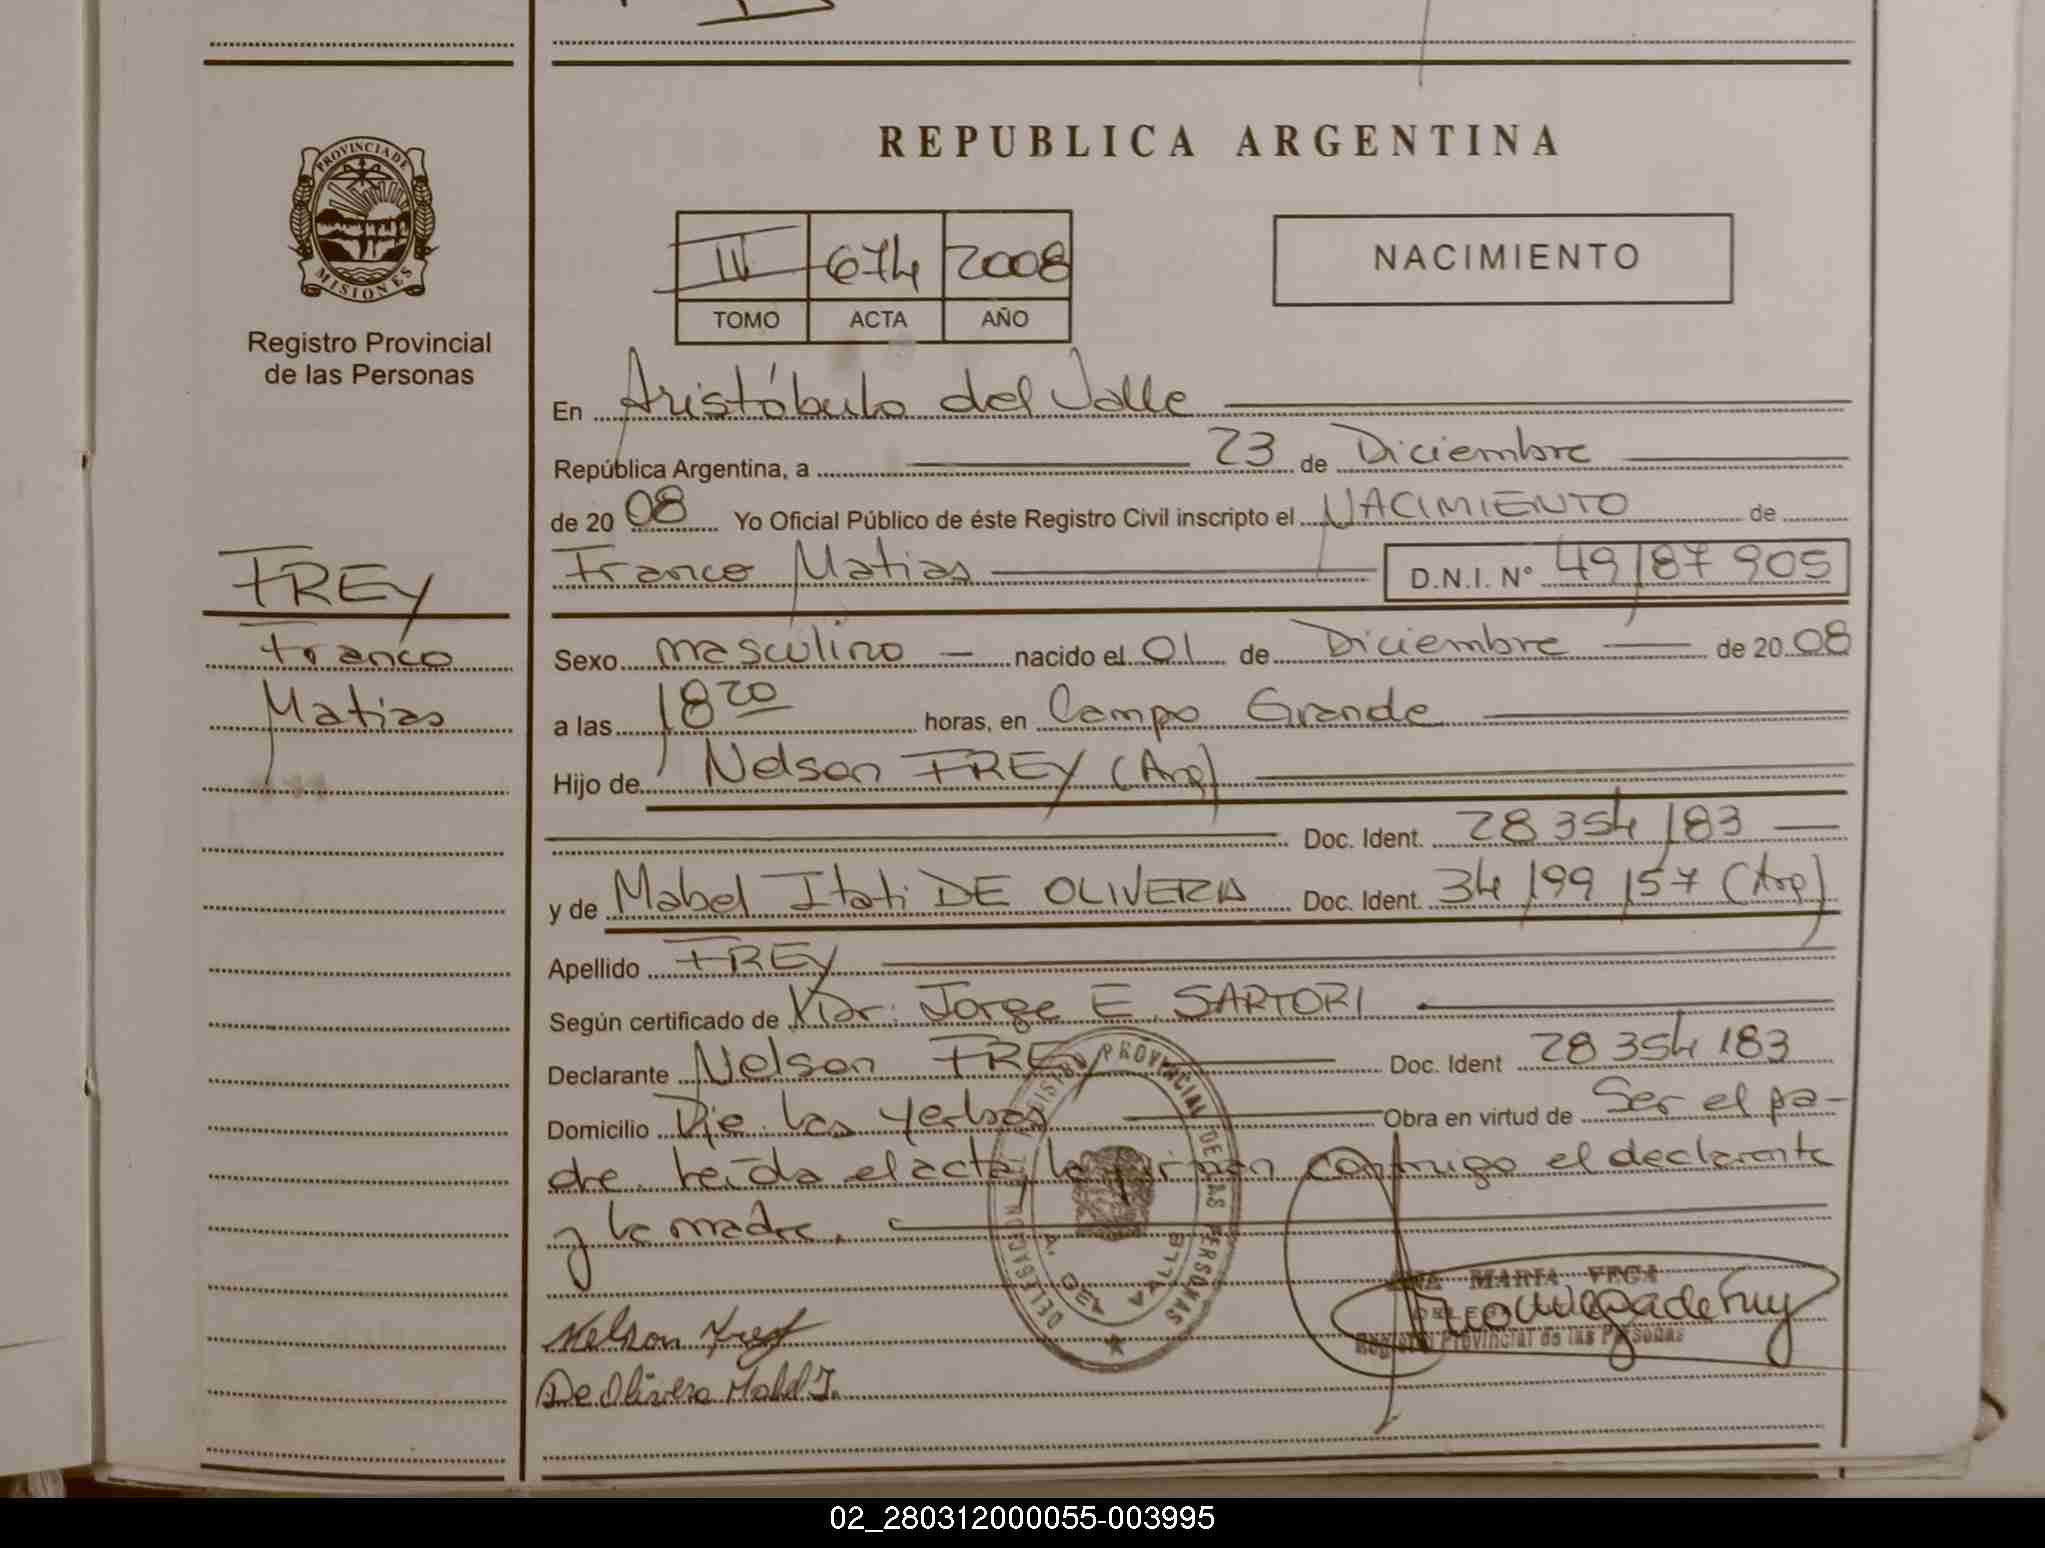 REPUBLICA ARGENTINA
PROVINCIA DE
MISIONES
Registro Provincial
de las Personas
IV 674 2008
TOMO ACTA AÑO
NACIMIENTO
En Aristóbulo del Valle
República Argentina, a 23 de Diciembre
de 20 08 Yo Oficial Público de éste Registro Civil inscripto el NACIMIENTO de
Franco Matias D.N.I. N° 49187905
FREY
Franco
Matias
Sexo masculino nacido el 01 de Diciembre de 20 08
a las 18 20 horas, en Campo Grande
Hijo de Nelson FREY (Arg)
Doc. Ident. 28 354 183
y de Mabel Itati DE OLIVERA Doc. Ident. 34 199 157 (Arg)
Apellido FREY
Según certificado de Jorge E. SARTORI
Declarante Nelson FREY Doc. Ident 28 354 183
Domicilio Pje. las yerbas Obra en virtud de Ser el pa-
dre. leída el acta, la firman conmigo el declarante
y la madre.
REGISTRO PROVINCIAL DE LAS PERSONAS
DELEGACION
A. DEL VALLE
ANA MARIA VEGA
Registro Provincial de las Personas
Nelson Frey
De Olivera Mabel I.
02_280312000055-003995